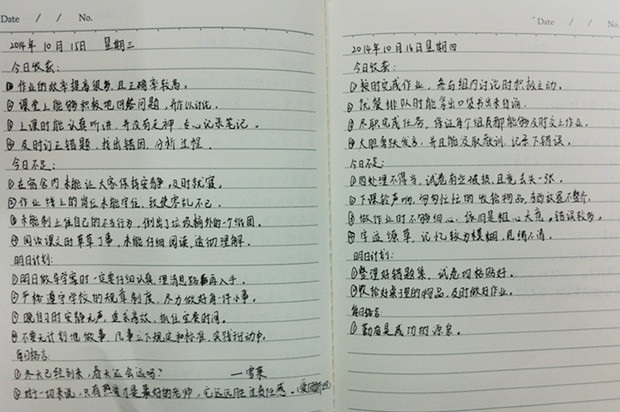 Date / / No.
2014年10月15日 星期三
今日收获:
① 作业的效率提高很多且正确率较高。
② 课堂上能够积极地回答问题,并作以讨论。
③ 上课时能认真听讲,并没有走神 专心记录笔记。
④ 及时订正错题,找出错因,分析过程。
今日不足:
① 在宿舍内未能让大家保持安静,及时就寝。
② 作业线上的岗位未能守住,致使零乱不已。
③ 未能制止住自己的不当行为,倒出了垃圾桶外的一个纸团。
④ 阅读课文的草草了事,未能仔细阅读,透彻理解。
明日计划:
① 明日做导学案时一定要仔细认真,理清思路再入手。
② 严格遵守学校的规章制度,尽力做好每一件小事。
③ 晚自习时安静无声,追求高效,抓住宝贵时间。
④ 不要无计划地做事,凡事立下规定和标准,实践行动中。
每日格言
① 冬天已经到来,春天还会远吗? —雪莱
② 对于一切来说,只有热爱才是最好的老师,它远远胜过责任感。(爱因斯坦)
Date / / No.
2014年10月16日星期四
今日收获:
① 按时完成作业,参与组内讨论时积极主动。
② 就餐排队时能拿出口袋书出来背诵。
③ 尽职完成任务,保证每个组员都能够及时交上作业。
④ 大胆踊跃发言,并且能汲取教训,记录下错误。
今日不足:
① 因处理不得当,试卷有些破损,且丢失一张。
② 下课铃声响,匆匆忙忙的收拾物品,导致放置不整齐。
③ 做作业时不够细心,依旧是粗心大意,错误较多。
④ 字迹潦草,记忆较为模糊,思绪不清。
明日计划:
① 整理好错题集,试卷订粘贴好。
② 收拾好桌子里的物品,及时做好作业。
每日格言
① 勤奋是成功的源泉。